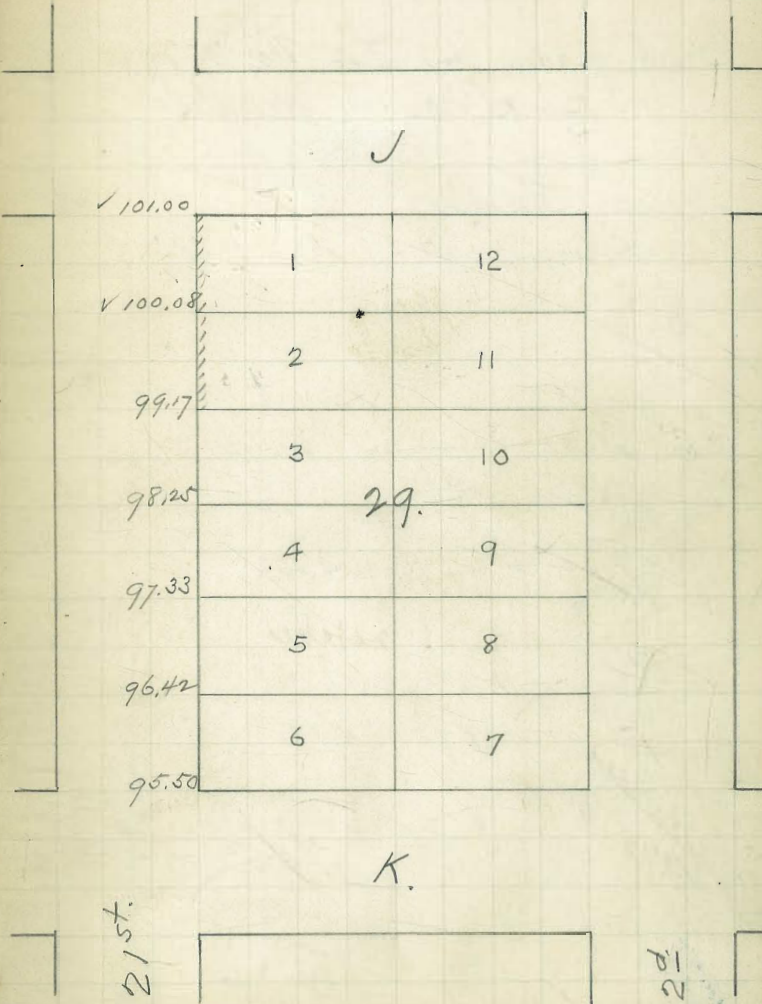 J
✓ 101.00
1 12
✓ 100.08
2 11
99.17
3 10
98.25 29.
4 9
97.33
5 8
96.42
6 7
95.50
K.
21st.
2d